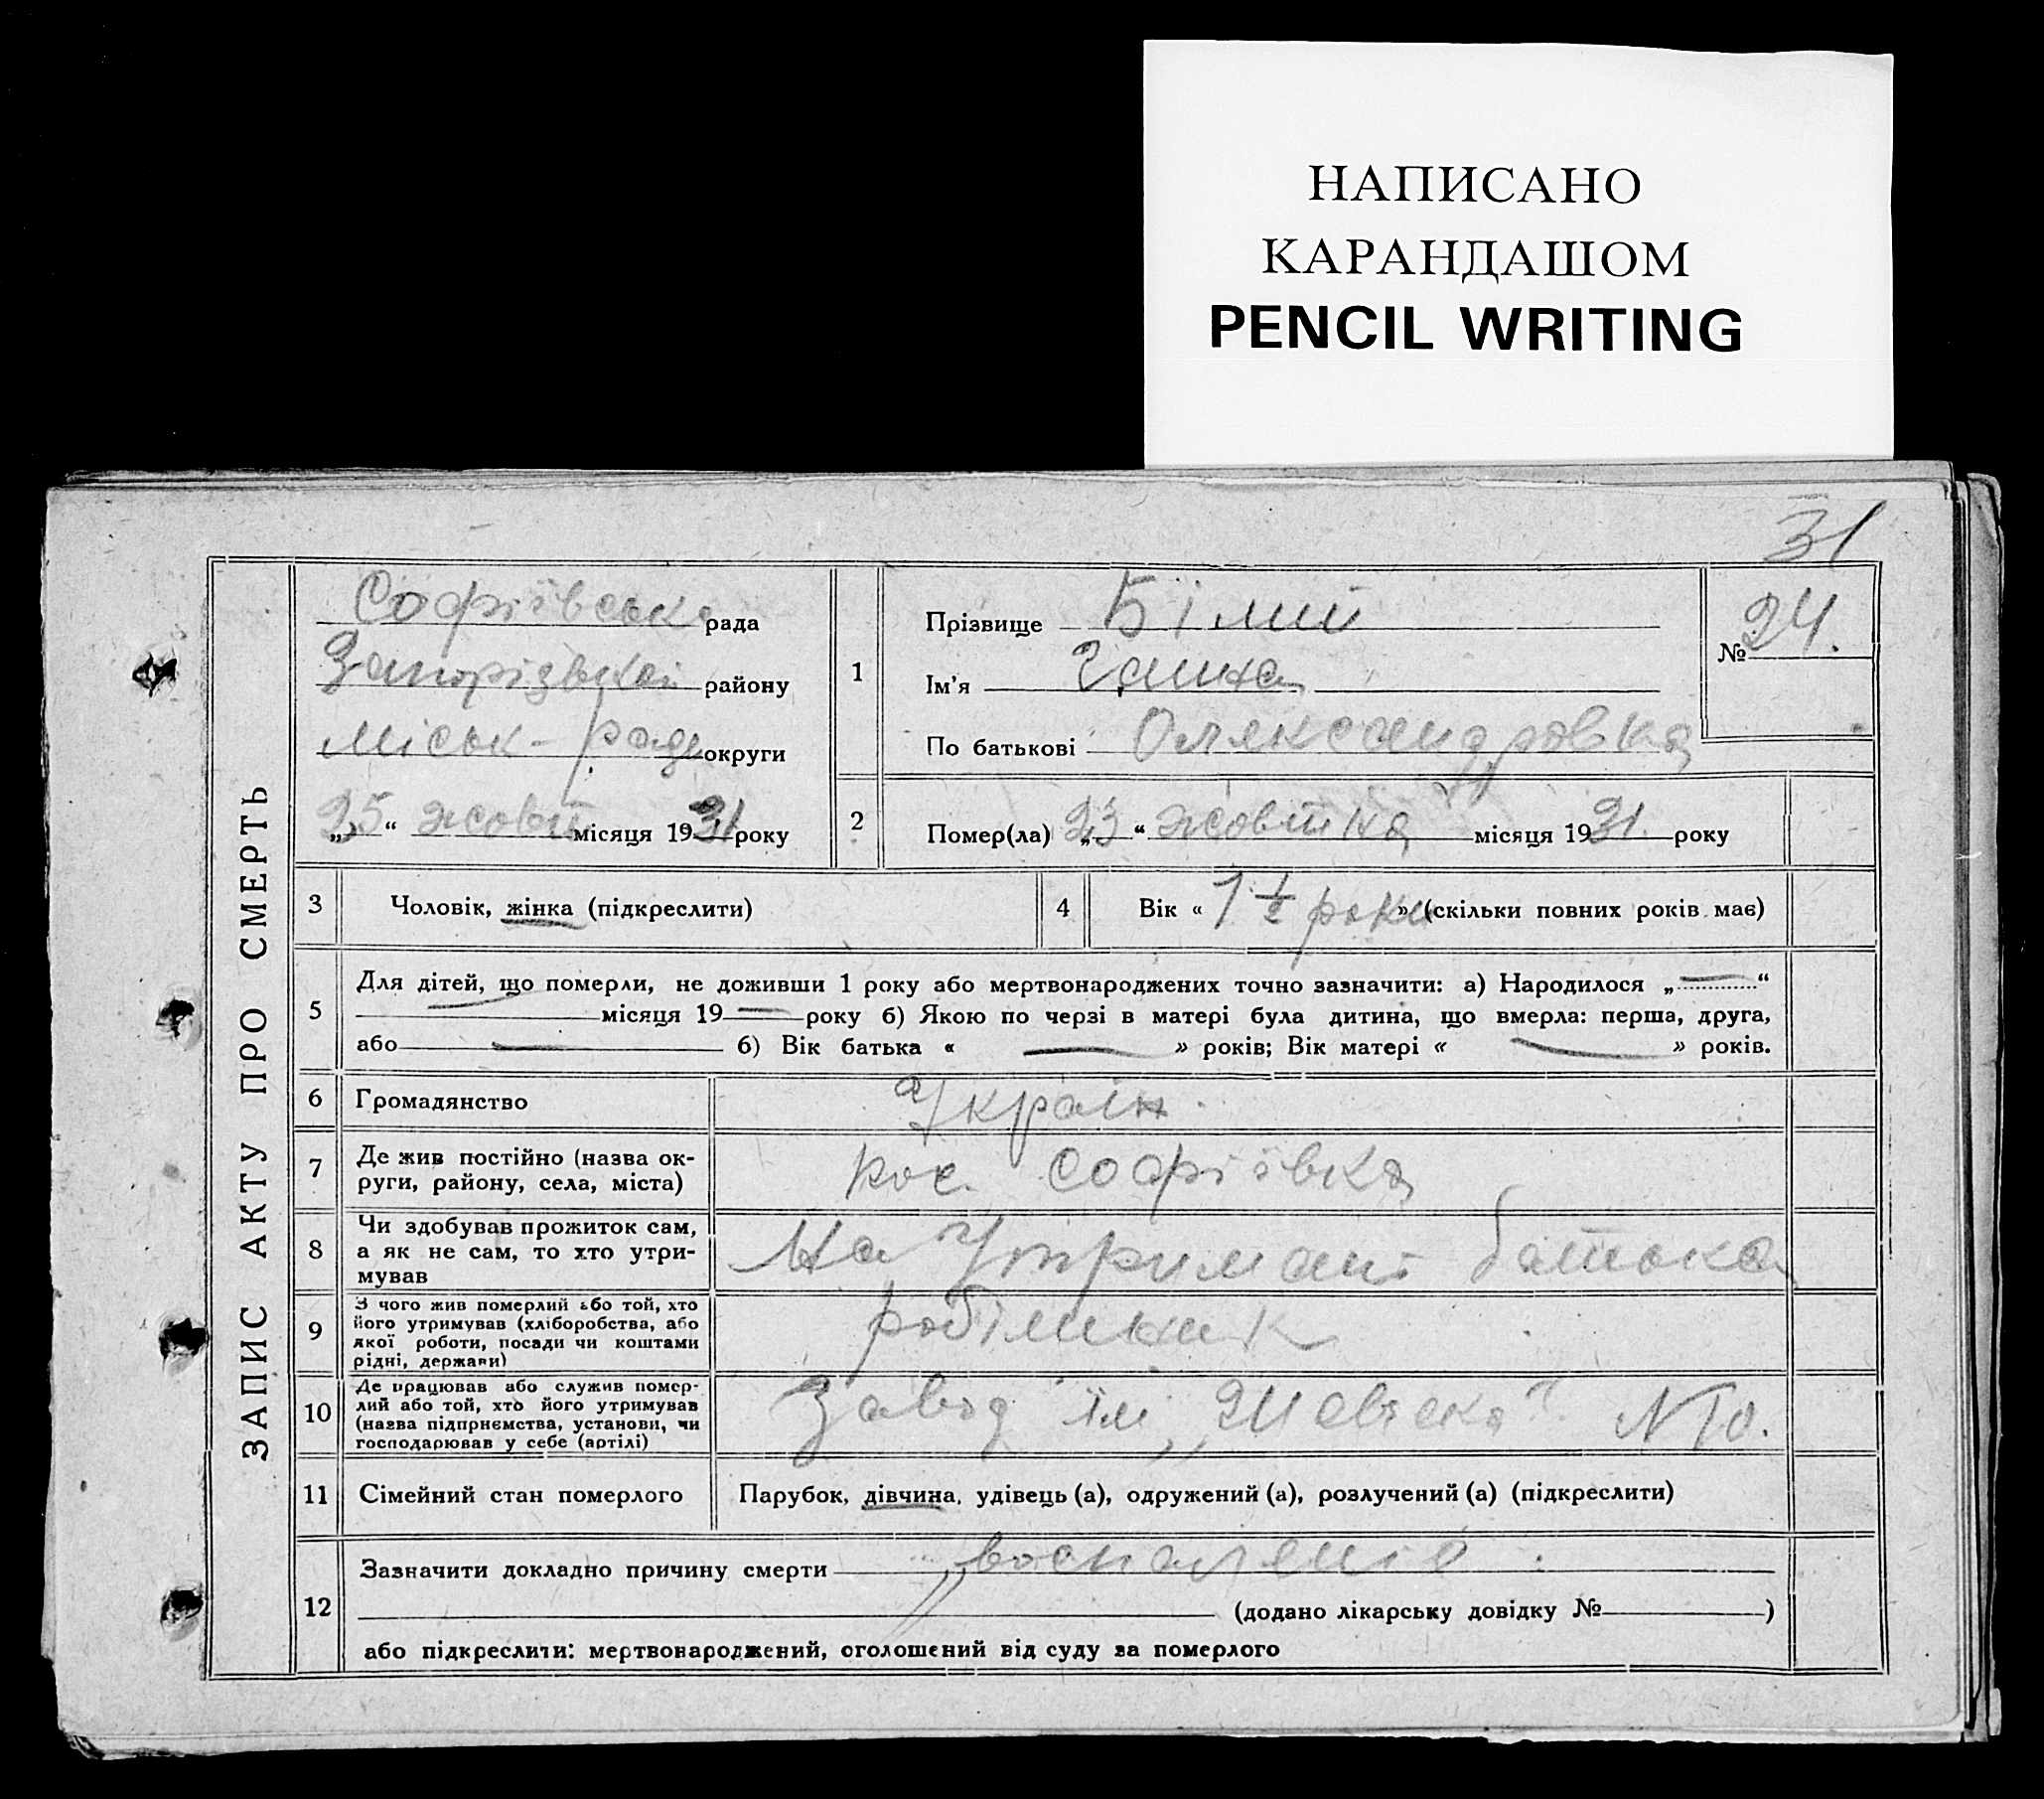 НАПИСАНО
КАРАНДАШОМ
PENCIL WRITING
31
ЗАПИС АКТУ ПРО СМЕРТЬ
Софіївська рада
Запорізької району
міськ-ради округи
„25“ жовт місяця 1931 року
1
Прізвище Білий
Ім'я Ганна
По батькові Олександровна
№ 24.
2
Помер(ла) „23“ жовтня місяця 1931. року
3 Чоловік, жінка (підкреслити)
4 Вік «1 ½ роки» (скільки повних років має)
5 Для дітей, що померли, не доживши 1 року або мертвонароджених точно зазначити: а) Народилося „—“
— місяця 19— року б) Якою по черзі в матері була дитина, що вмерла: перша, друга,
або — б) Вік батька « — » років; Вік матері « — » років.
6 Громадянство Україн.
7 Де жив постійно (назва ок-
руги, району, села, міста) кос. Софіївка
8 Чи здобував прожиток сам,
а як не сам, то хто утри-
мував На Утримані батька
9 З чого жив померлий або той, хто
його утримував (хліборобства, або
якої роботи, посади чи коштами
рідні, держави) робітник
10 Де працював або служив помер-
лий або той, хто його утримував
(назва підприємства, установи, чи
господарював у себе (артілі) Завод ім, N10.
11 Сімейний стан померлого Парубок, дівчина, удівець (а), одружений (а), розлучений (а) (підкреслити)
12 Зазначити докладно причину смерти „воспаленіе
(додано лікарську довідку № )
або підкреслити: мертвонароджений, оголошений від суду за померлого